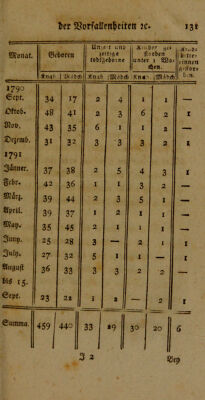 der Vorfallenheiten ꝛc. 131
Monat. Geboren
Knab Mädch Knab Mädch Knab Mädch
1790
Sept. 34 17 2 4 1 1 —
Oktob. 48 41 2 3 6 2 1
Nov. 43 35 6 1 1 2
Dezemb. 31 32 3 3 3 2 1
1791
Jänner. 37 38 2 5 4 3 1
Febr. 42 36 1 1 3 2
März. 39 44 2 3 5 1
April. 39 37 1 2 1
May. 35 45 2 1 1 1
Juny. 25 28 3 — 2 1 1
July. 27 32 5 1 1 — 1
August 36 33 3 3 2 2 —
bis 15.
Sept. 23 22 1 2 — 2 1
Summa. 459 440 33 29 30 20 6
J 2
Bey